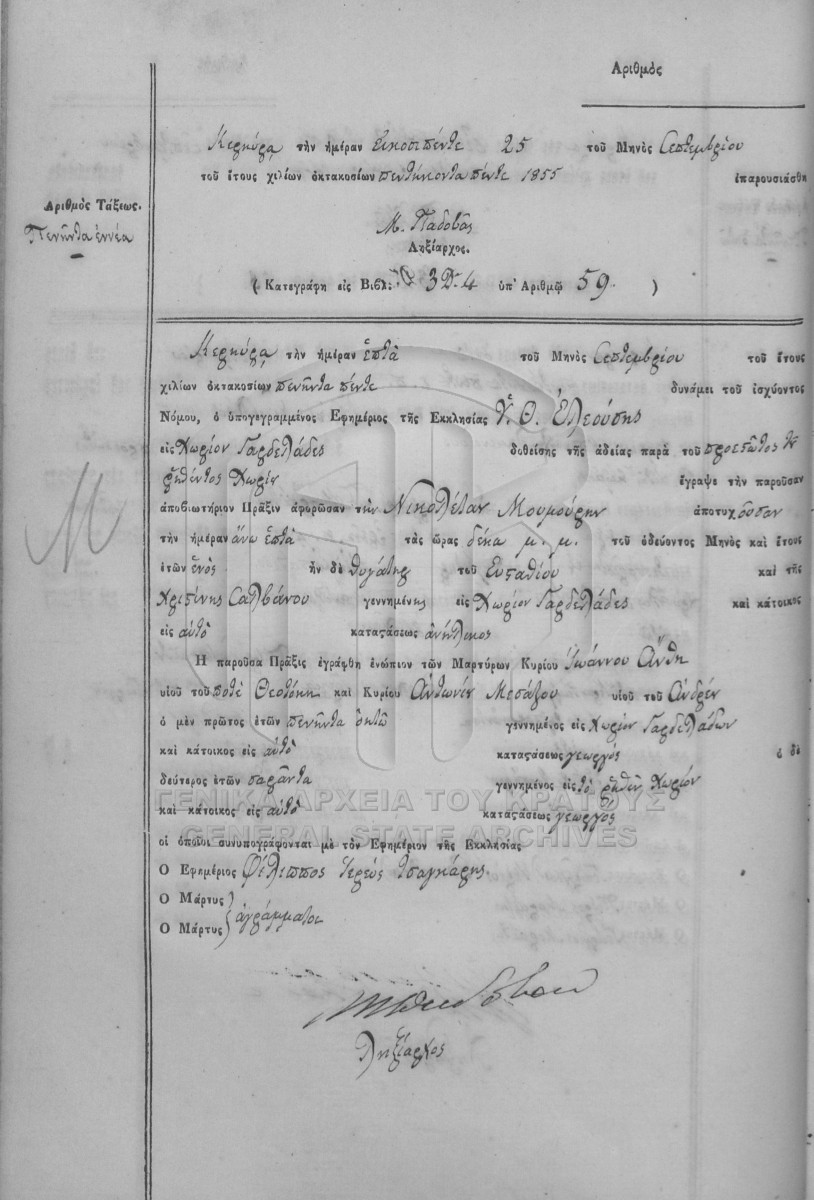 Ἀριθμὸς
Κερκύρᾳ τὴν ἡμέραν εἰκοσιπέντε 25 τοῦ Μηνὸς Σεπτεμβρίου
τοῦ ἔτους χιλίων ὀκτακοσίων πεντήκοντα πέντε 1855 ἐπαρουσιάσθη
Ἀριθμὸς Τάξεως.
Πενῆντα ἐννέα
Μ. Παδοβᾶς
Ληξίαρχος.
( Κατεγράφη εἰς Βιβλ: 3 Δ. 4 ὑπ' Ἀριθμῷ 59. )
Κερκύρᾳ τὴν ἡμέραν ἑπτὰ τοῦ Μηνὸς Σεπτεμβρίου τοῦ ἔτους
χιλίων ὀκτακοσίων πενῆντα πέντε δυνάμει τοῦ ἰσχύοντος
Νόμου, ὁ ὑπογεγραμμένος Ἐφημέριος τῆς Ἐκκλησίας Υ. Θ. Ἐλεούσης
εἰς Χωρίον Γαρδελάδες δοθείσης τῆς ἀδείας παρὰ τοῦ προεστῶτος τοῦ
ῥηθέντος Χωρίου ἔγραψε τὴν παροῦσαν
ἀποβιωτήριον Πρᾶξιν ἀφορῶσαν τὴν Νικολέταν Μουμούρην ἀποτυχοῦσαν
Μ
τὴν ἡμέραν ἄνω ἑπτὰ τὰς ὥρας δέκα μ. μ. τοῦ ὁδεύοντος Μηνὸς καὶ ἔτους
ἐτῶν ἑνὸς ἦν δὲ θυγάτηρ τοῦ Εὐσταθίου καὶ τῆς
Χριστίνης Σαλβάνου γεννημένης εἰς Χωρίον Γαρδελάδες καὶ κάτοικος
εἰς αὐτὸ καταστάσεως ἀνήλικος
Ἡ παροῦσα Πρᾶξις ἐγράφθη ἐνώπιον τῶν Μαρτύρων Κυρίου Ἰωάννου Ἄνθη
υἱοῦ τοῦ ποτὲ Θεοτόκη καὶ Κυρίου Ἀντωνίου Μεσάζου υἱοῦ τοῦ Ἀνδρέου
ὁ μὲν πρῶτος ἐτῶν πενῆντα ὀκτὼ γεννημένος εἰς Χωρίον Γαρδελάδων
καὶ κάτοικος εἰς αὐτὸ καταστάσεως γεωργὸς ὁ δὲ
δεύτερος ἐτῶν σαράντα γεννημένος εἰς τὸ ῥηθὲν Χωρίον
καὶ κάτοικος εἰς αὐτὸ καταστάσεως γεωργὸς
ΓΕΝΙΚΑ ΑΡΧΕΙΑ ΤΟΥ ΚΡΑΤΟΥΣ
GENERAL STATE ARCHIVES
οἱ ὁποῖοι συνυπογράφονται μὲ τὸν Ἐφημέριον τῆς Ἐκκλησίας
Ὁ Ἐφημέριος Φίλιππος Ἱερεὺς Τσαγκάρης
Ὁ Μάρτυς
Ὁ Μάρτυς } ἀγράμματοι
Ληξίαρχος